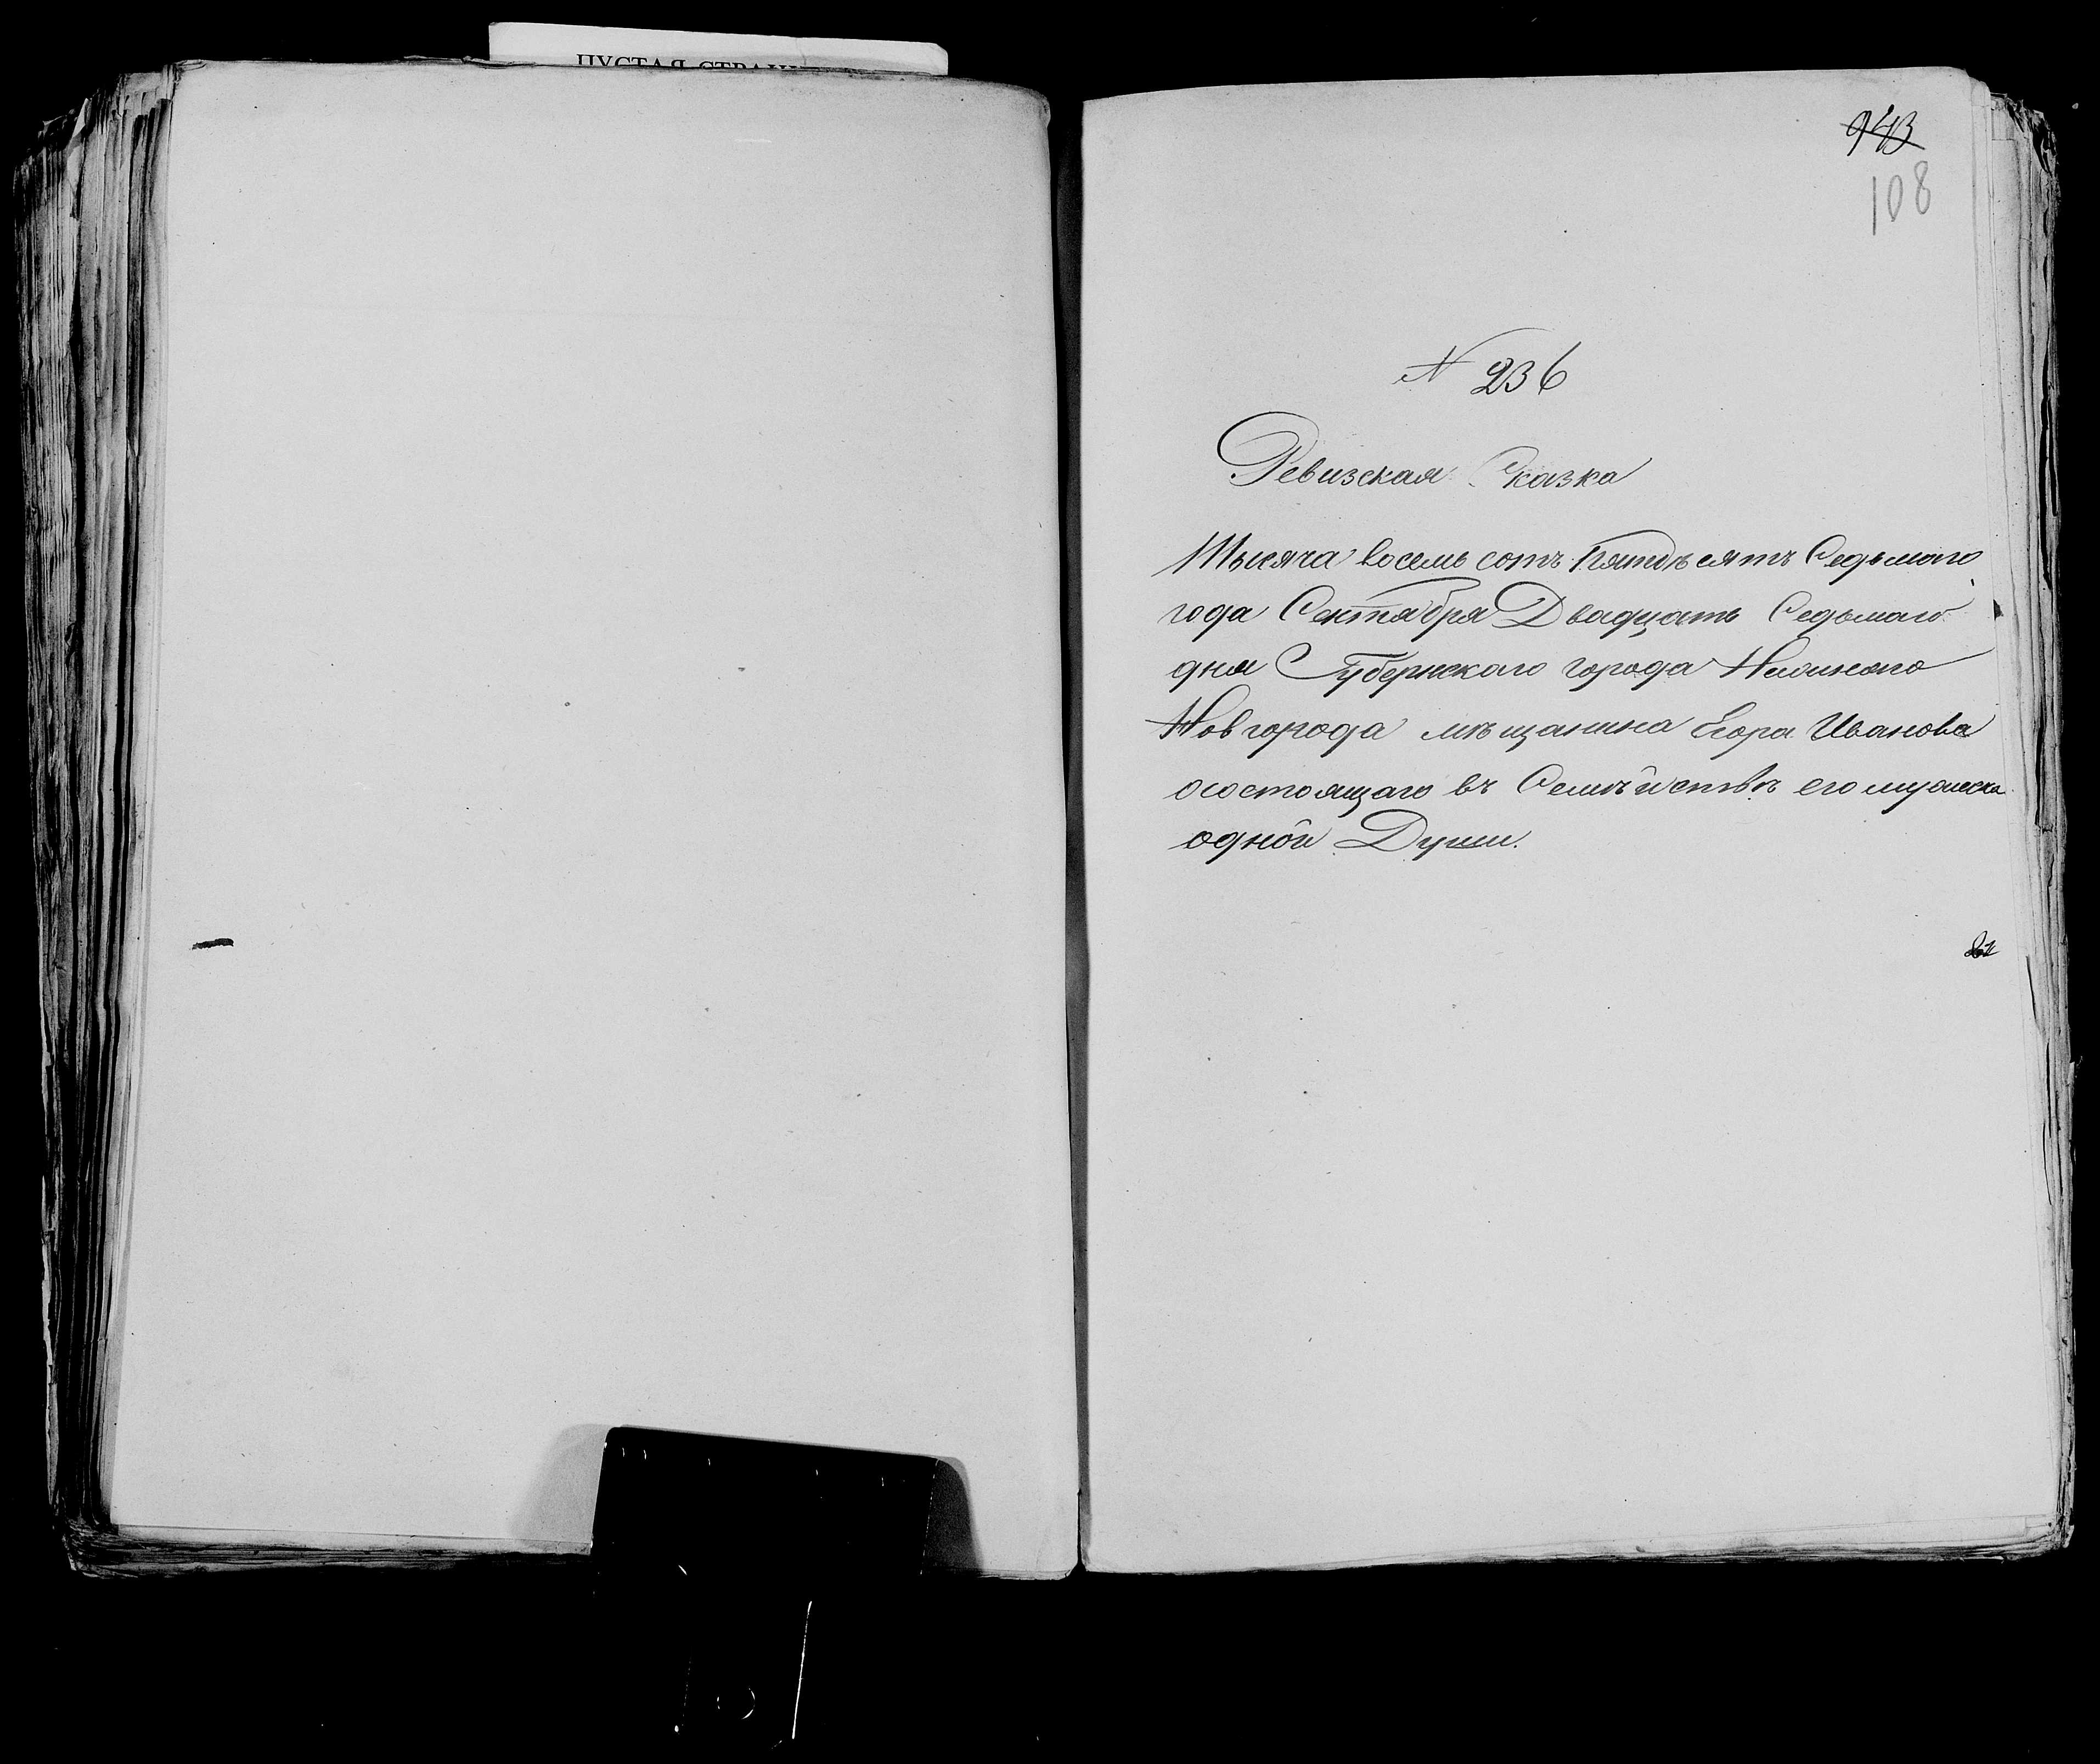 ПУСТАЯ СТРАНИ
943
108
N 236
Ревизская Сказка
Тысяча восемь сотъ пятдѣсятъ Седьмаго
года Сентября Двадцать Седьмаго
дня Губернскаго города Нижняго
Новгорода мѣщанина Егора Иванова
осостоящаго въ Семѣйствѣ его мужеска
одной Души.